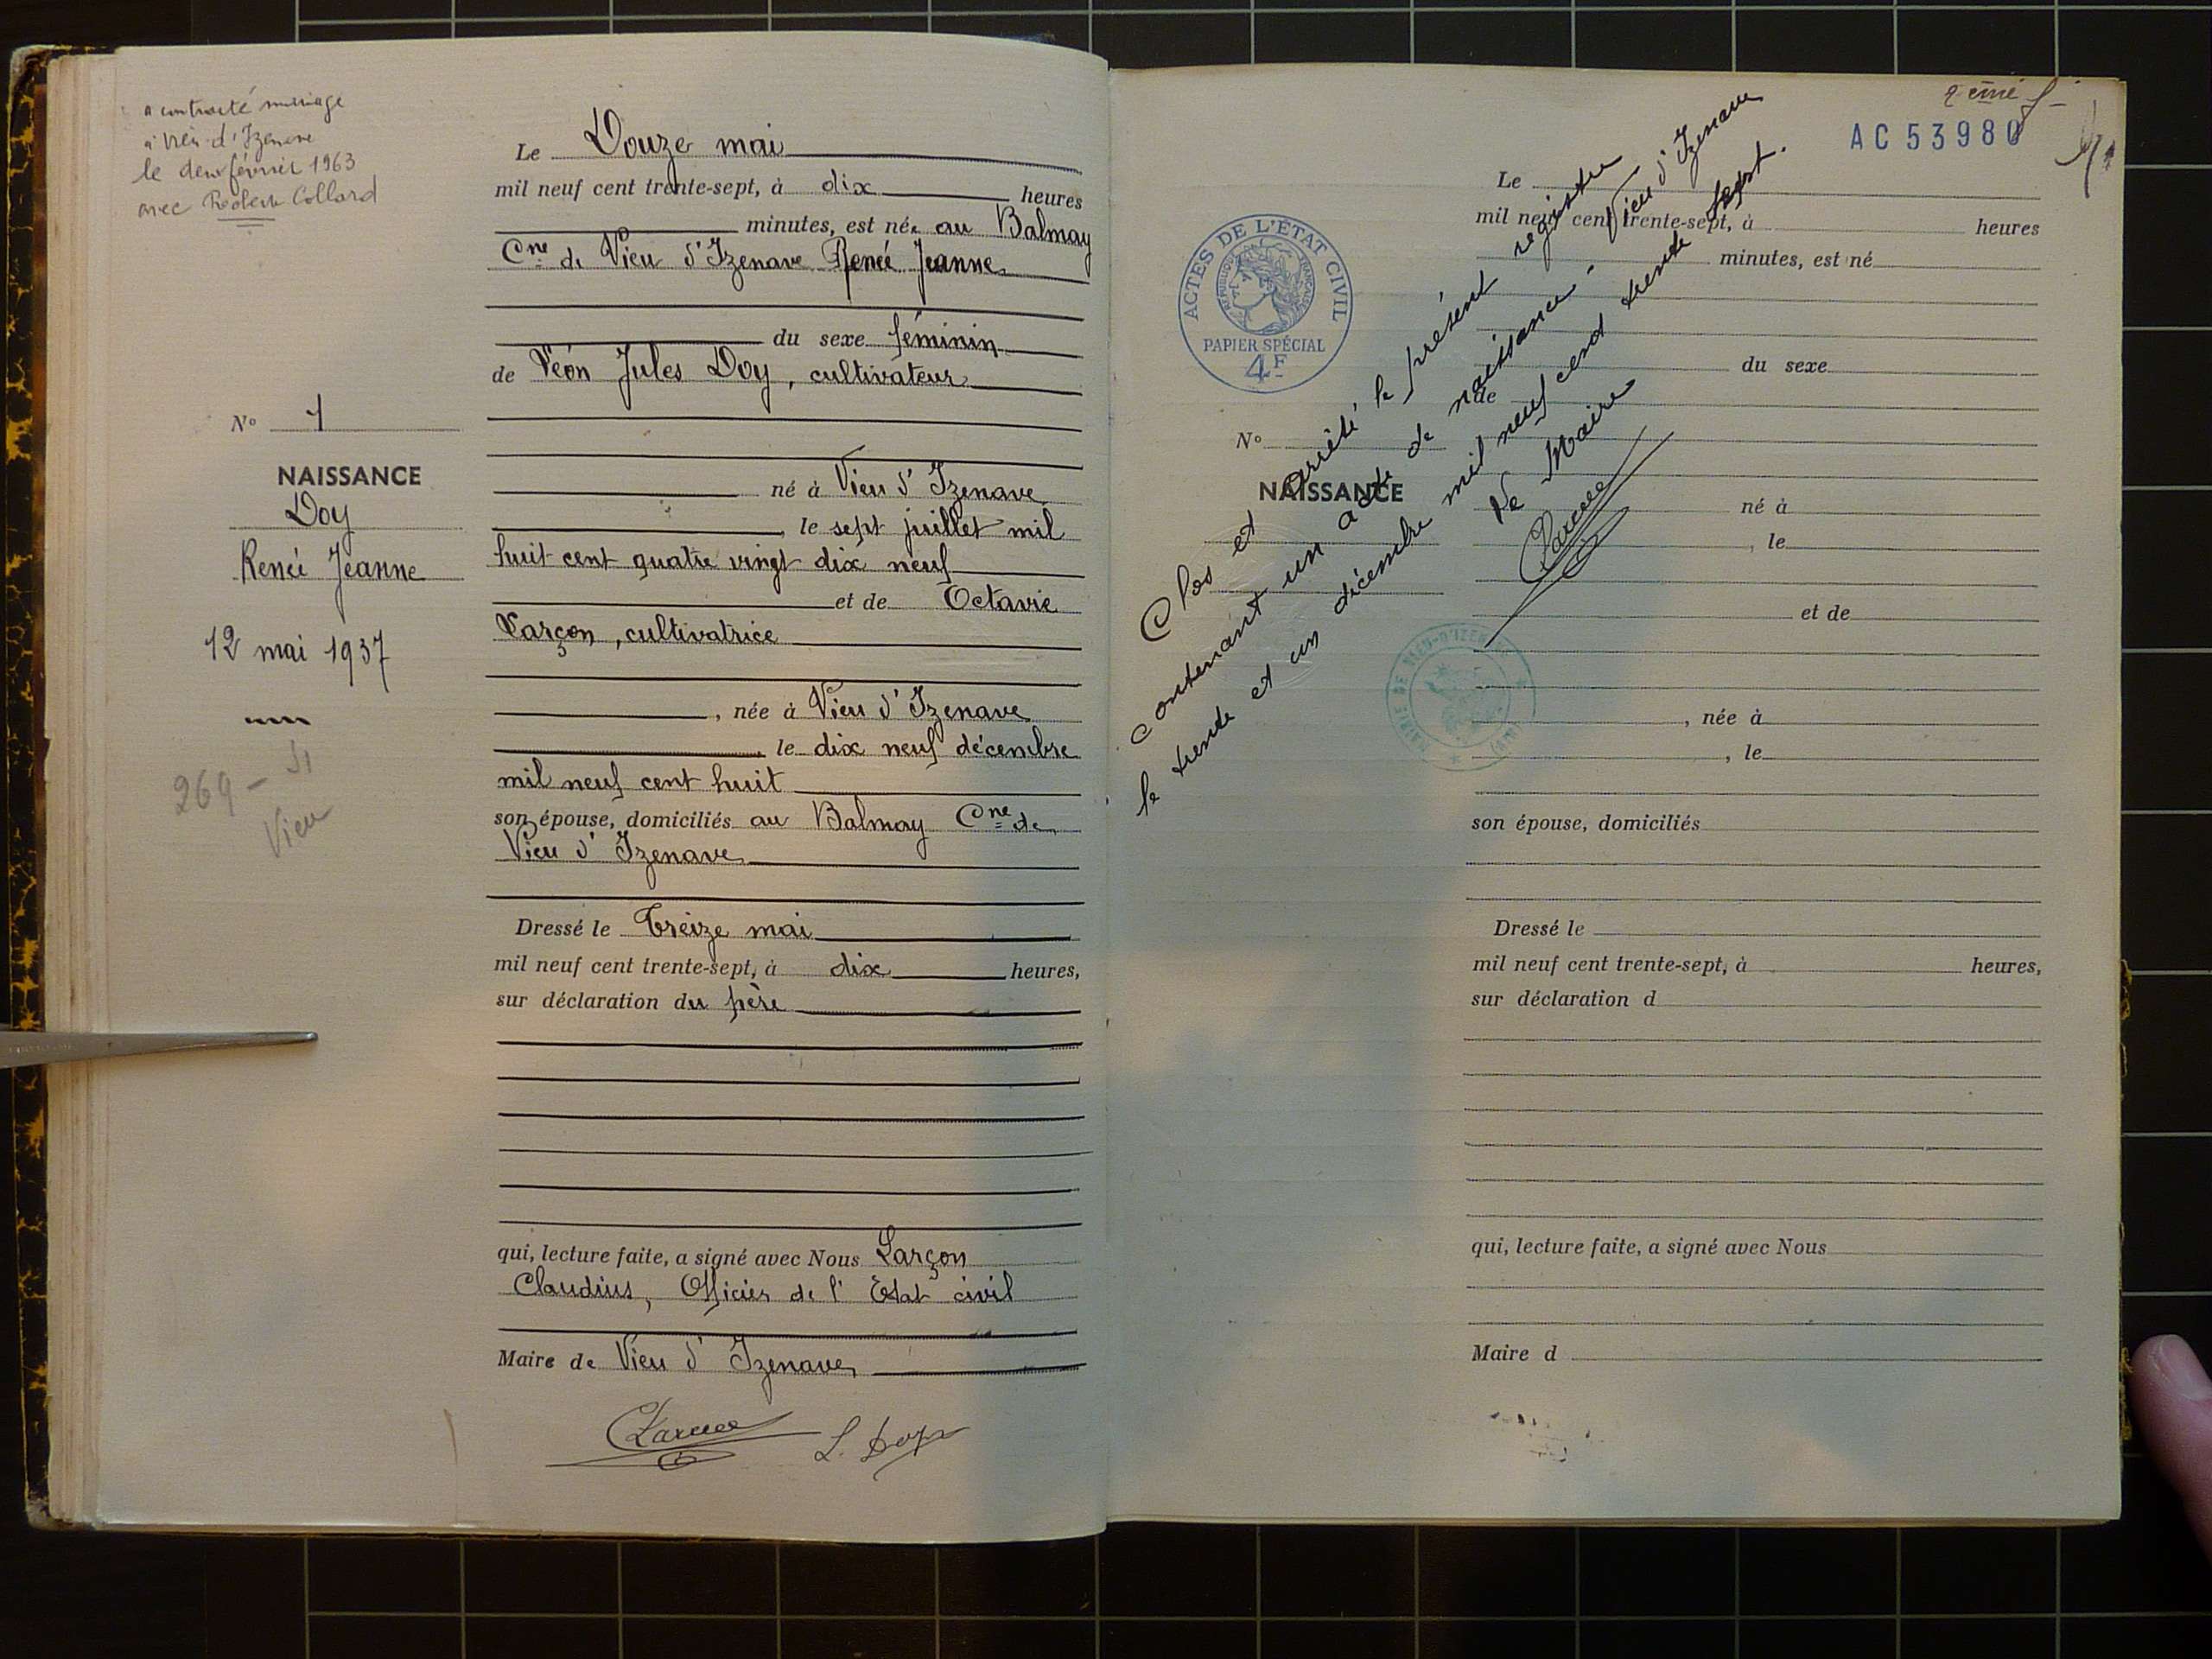 a contracté mariage
à Vieu d'Izenave
le deux février 1963
avec Robert Collard
N° 1
NAISSANCE
Doy
Renée Jeanne
12 mai 1937
269 -
Vieu
Le Douze mai
mil neuf cent trente-sept, à dix heures
minutes, est née au Balmay
Cne de Vieu d'Izenave Renée Jeanne
du sexe féminin
de Léon Jules Doy, cultivateur
né à Vieu d'Izenave
, le sept juillet mil
huit cent quatre vingt dix neuf
et de Octavie
Larçon, cultivatrice
, née à Vieu d'Izenave
, le dix neuf décembre
mil neuf cent huit
son épouse, domiciliés au Balmay Cne de
Vieu d'Izenave
Dressé le Treize mai
mil neuf cent trente-sept, à dix heures,
sur déclaration du père
qui, lecture faite, a signé avec Nous Larçon
Claudius, Officier de l'Etat civil
Maire de Vieu d'Izenave
Larçon L. Doy
2ème
AC 53980
ACTES DE L'ÉTAT CIVIL
RÉPUBLIQUE FRANÇAISE
PAPIER SPÉCIAL
4F
Le
mil neuf cent trente-sept, à heures
minutes, est né
du sexe
de
N°
NAISSANCE
né à
, le
et de
, née à
, le
son épouse, domiciliés
Dressé le
mil neuf cent trente-sept, à heures,
sur déclaration d
qui, lecture faite, a signé avec Nous
Maire d
Clos et arrêté le présent registre
contenant un acte de naissance. Vieu d'Izenave
le trente et un décembre mil neuf cent trente sept.
Le Maire
Larçon
MAIRIE DE VIEU-D'IZENAVE (AIN)